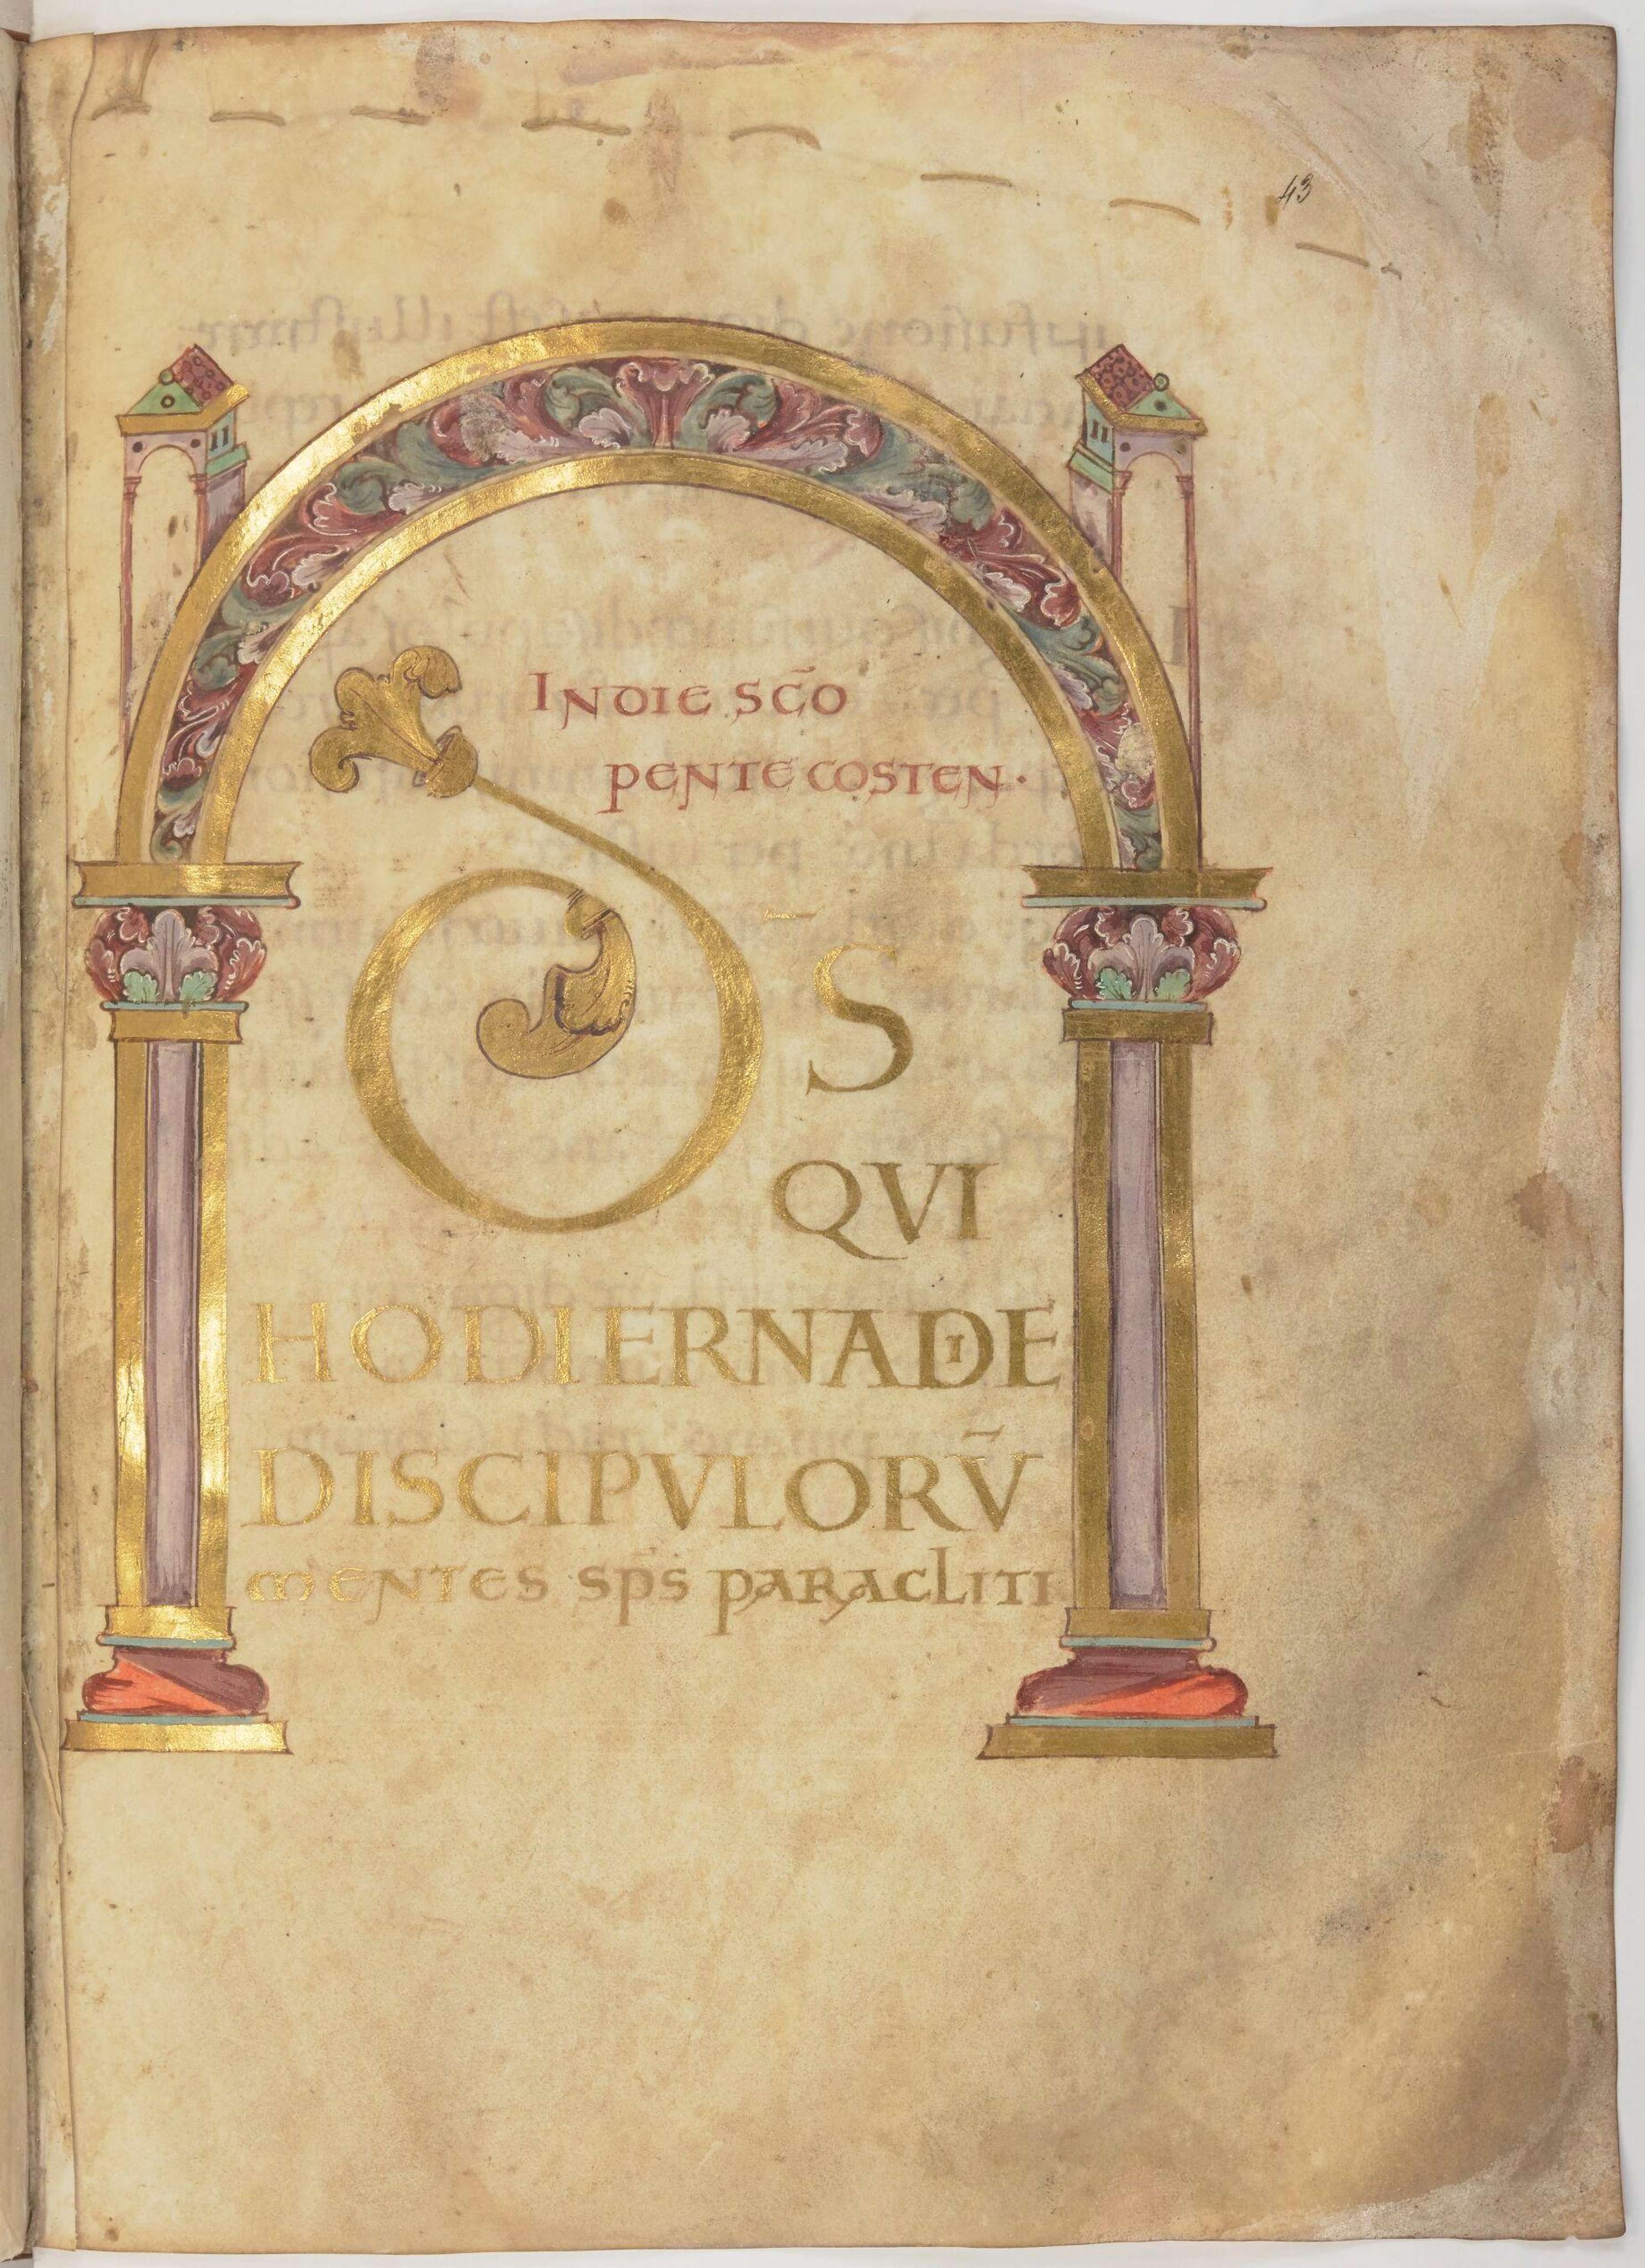 43
IN DIE SC̄O
PENTECOSTEN·
D̄S
QVI
HODIERNA DIE
DISCIPVLORV̄
MENTES SP̄S PARACLITI